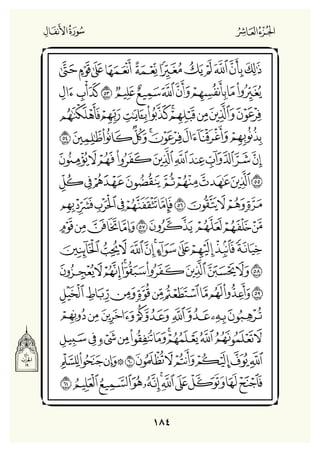 الجُزْءُ العَاشِرُ
سُورَةُ الأَنفَالِ
ذَٰلِكَ بِأَنَّ ٱللَّهَ لَمْ يَكُ مُغَيِّرًا نِّعْمَةً أَنْعَمَهَا عَلَىٰ قَوْمٍ حَتَّىٰ
يُغَيِّرُوا۟ مَا بِأَنفُسِهِمْ وَأَنَّ ٱللَّهَ سَمِيعٌ عَلِيمٌ ٥٣ كَدَأْبِ ءَالِ
فِرْعَوْنَ وَٱلَّذِينَ مِن قَبْلِهِمْ كَذَّبُوا۟ بِـَٔايَـٰتِ رَبِّهِمْ فَأَهْلَكْنَـٰهُم
بِذُنُوبِهِمْ وَأَغْرَقْنَآ ءَالَ فِرْعَوْنَ وَكُلٌّ كَانُوا۟ ظَـٰلِمِينَ ٥٤
إِنَّ شَرَّ ٱلدَّوَآبِّ عِندَ ٱللَّهِ ٱلَّذِينَ كَفَرُوا۟ فَهُمْ لَا يُؤْمِنُونَ
٥٥ ٱلَّذِينَ عَـٰهَدتَّ مِنْهُمْ ثُمَّ يَنقُضُونَ عَهْدَهُمْ فِى كُلِّ
مَرَّةٍ وَهُمْ لَا يَتَّقُونَ ٥٦ فَإِمَّا تَثْقَفَنَّهُمْ فِى ٱلْحَرْبِ فَشَرِّدْ بِهِم
مَّنْ خَلْفَهُمْ لَعَلَّهُمْ يَذَّكَّرُونَ ٥٧ وَإِمَّا تَخَافَنَّ مِن قَوْمٍ
خِيَانَةً فَٱنۢبِذْ إِلَيْهِمْ عَلَىٰ سَوَآءٍ إِنَّ ٱللَّهَ لَا يُحِبُّ ٱلْخَآئِنِينَ
٥٨ وَلَا يَحْسَبَنَّ ٱلَّذِينَ كَفَرُوا۟ سَبَقُوٓا۟ إِنَّهُمْ لَا يُعْجِزُونَ
٥٩ وَأَعِدُّوا۟ لَهُم مَّا ٱسْتَطَعْتُم مِّن قُوَّةٍ وَمِن رِّبَاطِ ٱلْخَيْلِ
تُرْهِبُونَ بِهِۦ عَدُوَّ ٱللَّهِ وَعَدُوَّكُمْ وَءَاخَرِينَ مِن دُونِهِمْ
لَا تَعْلَمُونَهُمُ ٱللَّهُ يَعْلَمُهُمْ وَمَا تُنفِقُوا۟ مِن شَىْءٍ فِى سَبِيلِ
ٱللَّهِ يُوَفَّ إِلَيْكُمْ وَأَنتُمْ لَا تُظْلَمُونَ ٦٠ ۞ وَإِن جَنَحُوا۟ لِلسَّلْمِ
فَٱجْنَحْ لَهَا وَتَوَكَّلْ عَلَى ٱللَّهِ إِنَّهُۥ هُوَ ٱلسَّمِيعُ ٱلْعَلِيمُ ٦١
١٨٤